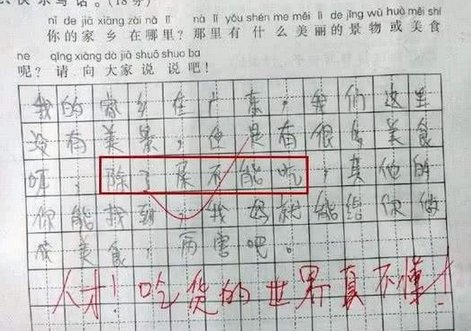 快乐写话。(18分)
nǐ de jiā xiāng zài nǎ lǐ nà lǐ yǒu shén me měi lì de jǐng wù huò měi shí
你的家乡在哪里?那里有什么美丽的景物或美食
ne qǐng xiàng dà jiā shuō shuo ba
呢?请向大家说说吧!
我的家乡在广东,我们这里
没有美景,但是有很多美食
,除了不能吃,其他的
你能找到,我妈就能给你做
成美食,厉害吧。
人才!吃货的世界真不懂!